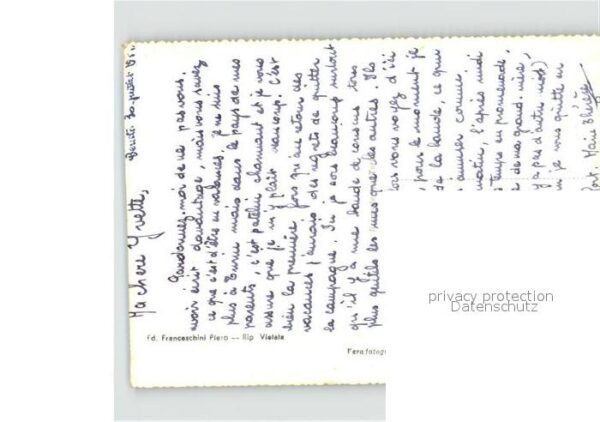 30 juillet
Ma chère Yvette,
Pardonnez-moi de ne pas vous
avoir écrit davantage, mais vous savez
ce que c'est d'être en vacances, je ne suis
plus à Turin mais dans le pays de mes
parents, c'est patelin charmant et je vous
assure que je m'y plaît beaucoup. C'est
bien la première fois qu'au retour des
vacances j'aurais des regrets de quitter
la campagne. Ici je sors beaucoup surtout
qu'il y a une bande de cousins très
plus gentils les uns que les autres. Ils
lors vous voyez d'ici
, pour le moment je
de la bande, ce qui
s'amuser comme
matin, l'après midi
temps en promenade,
e de ma grand-mère,
y a pas d'autre mot)
je vous quitte en
Fd. Franceschini Piero -- Rip Vietate
Fera fotogr
privacy protection
Datenschutz